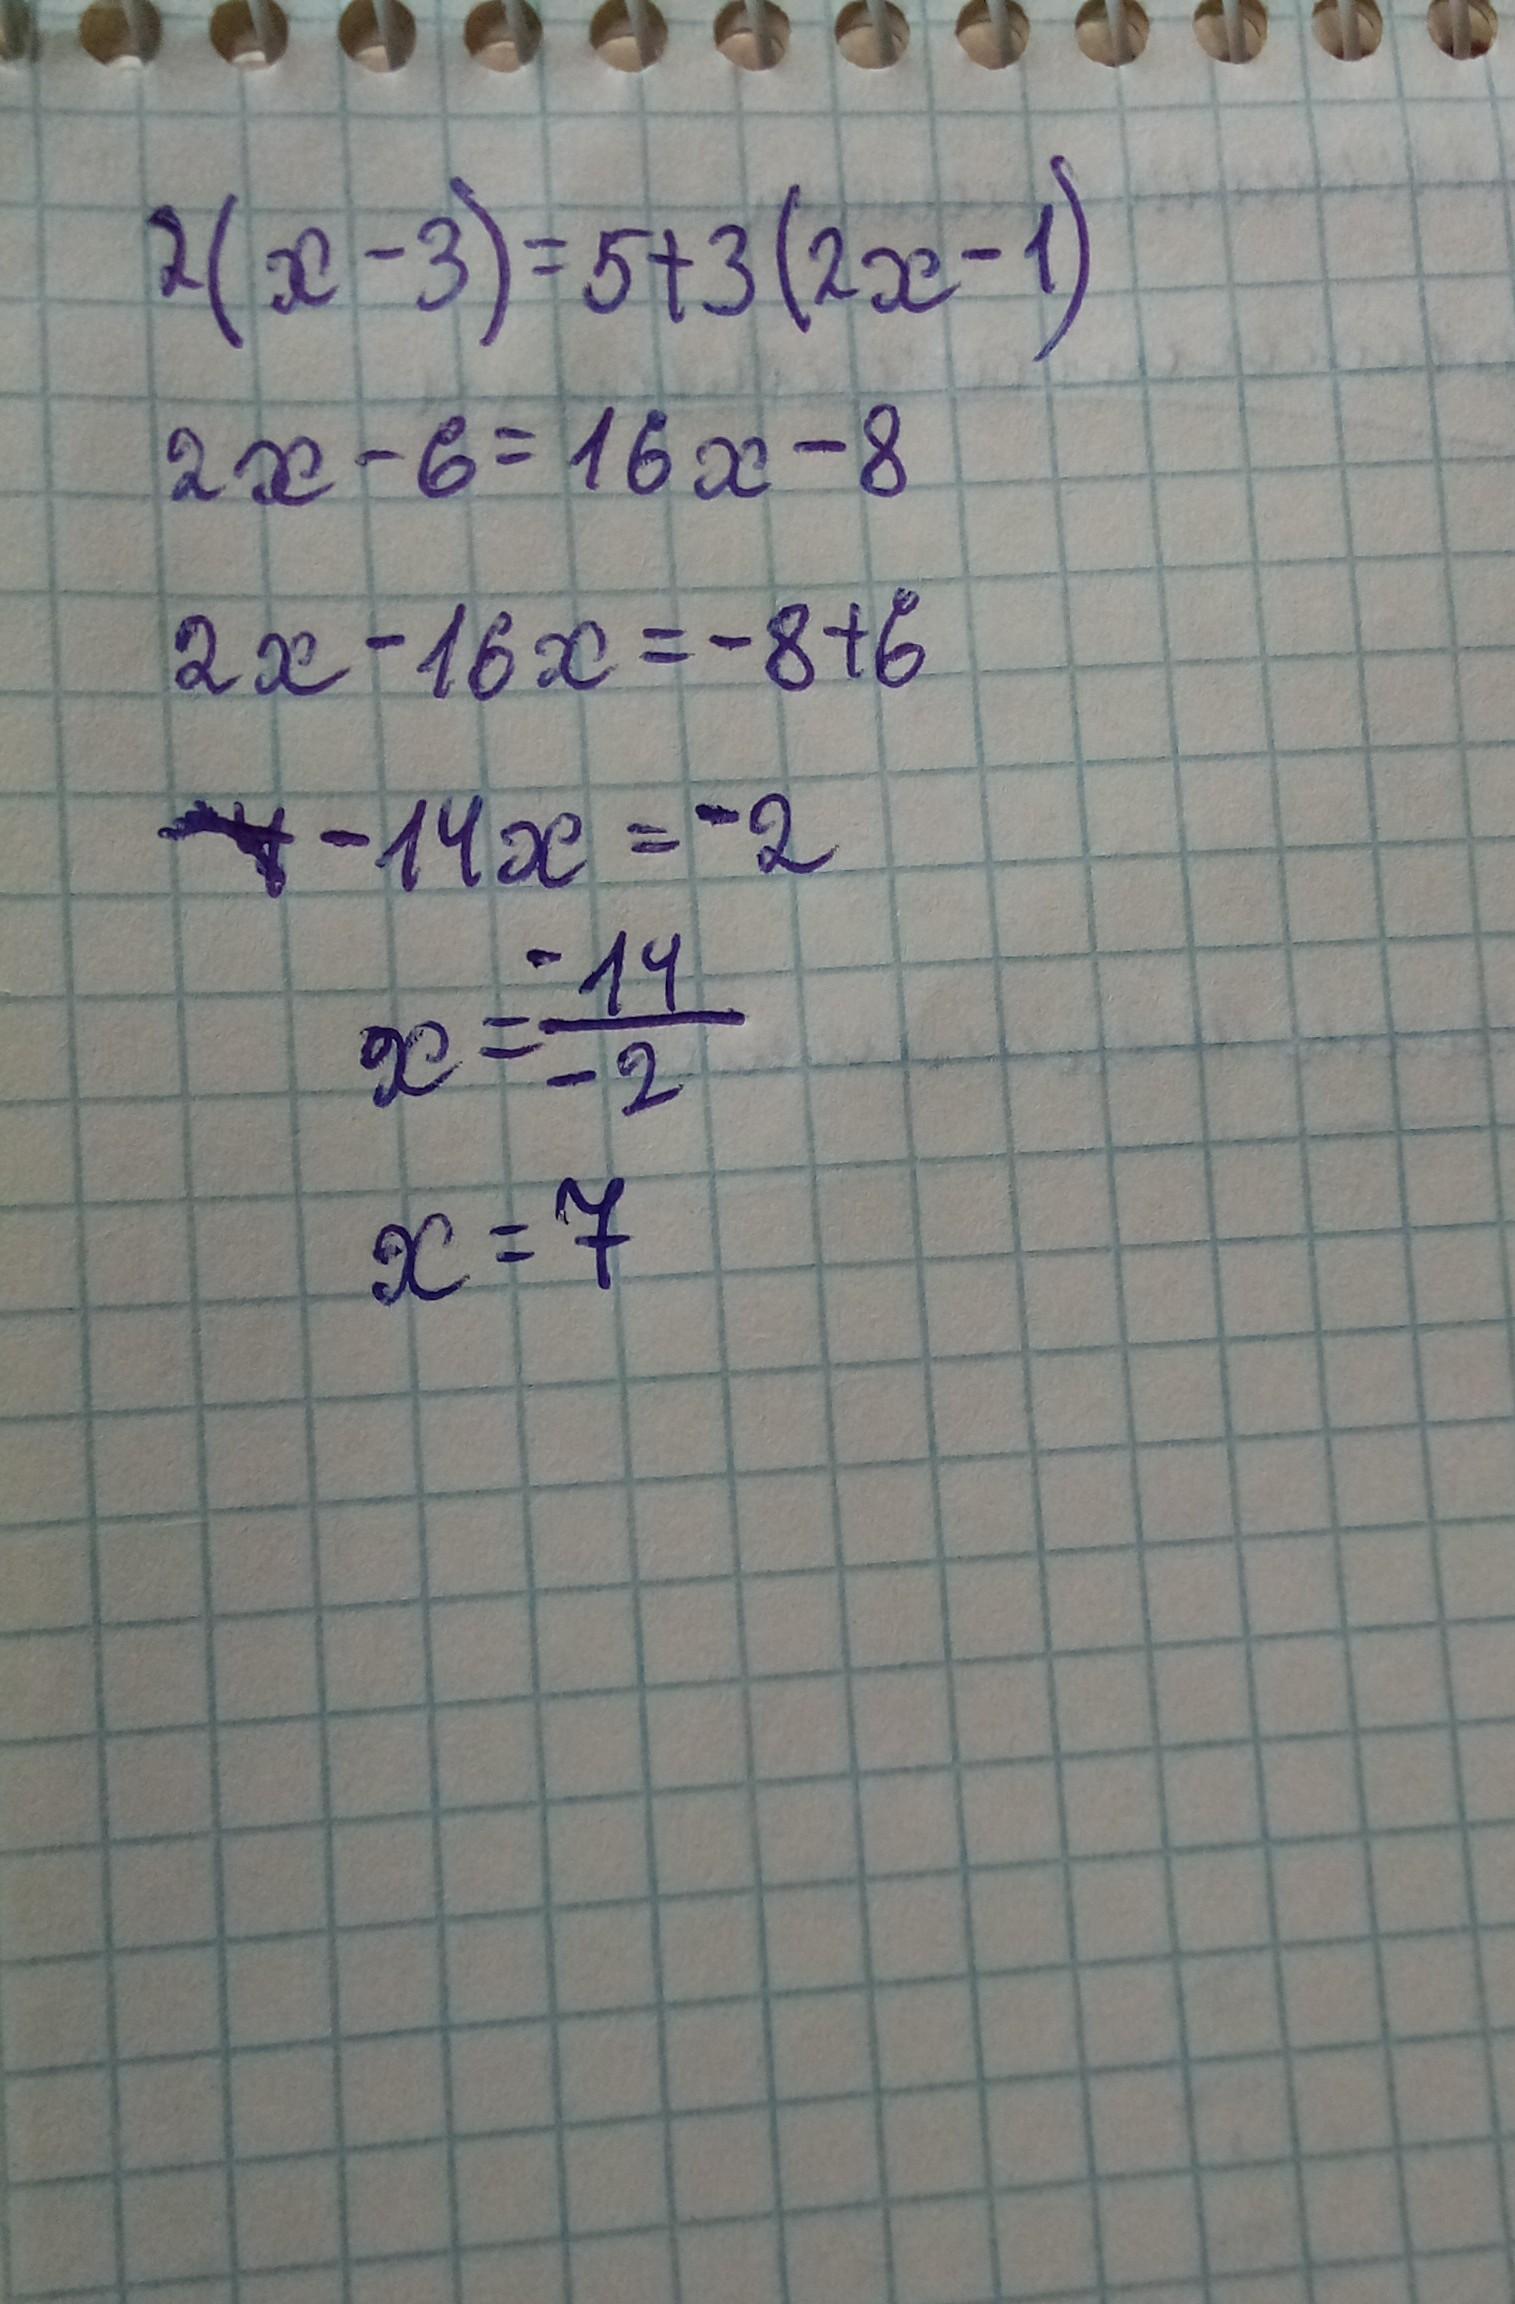 2(x-3)=5+3(2x-1)
2x-6=16x-8
2x-16x=-8+6
-14x=-2
x=-14/-2
x=7